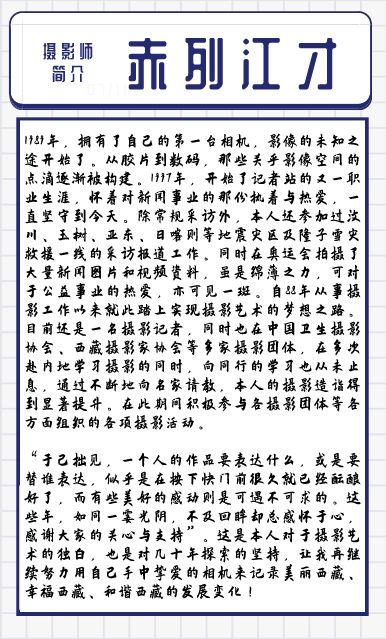 摄影师
简介
赤列江才
1989年，拥有了自己的第一台相机，影像的未知之
途开始了。从胶片到数码，那些关乎影像空间的
点滴逐渐被构建。1997年，开始了记者站的又一职
业生涯，怀着对新闻事业的那份执着与热爱，一
直坚守到今天。除常规采访外，本人还参加过汶
川、玉树、亚东、日喀则等地震灾区及陇子雪灾
救援一线的采访报道工作。同时在奥运会拍摄了
大量新闻图片和视频资料，虽是绵薄之力，可对
于公益事业的热爱，亦可见一斑。自88年从事摄
影工作以来就此踏上实现摄影艺术的梦想之路。
目前还是一名摄影记者，同时也在中国卫生摄影
协会、西藏摄影家协会等多家摄影团体，在多次
赴内地学习摄影的同时，向同行的学习也从未止
息，通过不断地向名家请教，本人的摄影造诣得
到显著提升。在此期间积极参与各摄影团体等各
方面组织的各项摄影活动。
“于己拙见，一个人的作品要表达什么，或是要
替谁表达，似乎是在按下快门前很久就已经酝酿
好了，而有些美好的感动则是可遇不可求的。这
些年，如同一霎光阴，不及回眸却总感怀于心，
感谢大家的关心与支持”。这是本人对于摄影艺
术的独白，也是对几十年探索的坚持，让我再继
续努力用自己手中挚爱的相机来记录美丽西藏、
幸福西藏、和谐西藏的发展变化！